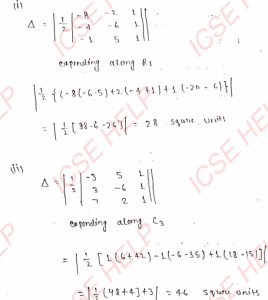 (i)
Δ = | 1/2 | -8 -2 1 ||
-4 -6 1
-1 5 1
expending along R1
| 1/2 { (-8(-6-5)+2(-4+1)+1(-20-6)} |
= | 1/2 [88-6-26] | = 28 squre units
(ii)
Δ = | 1/2 | -3 5 1 ||
3 -6 1
7 2 1
expending along C3
= | 1/2 [1(6+42)-1(-6-35)+1(18-15)] |
= | 1/2 (48+4]+3 | = 46 squre units
ICSE HELP
ICSE HELP
ICSE HELP
ICSE HELP